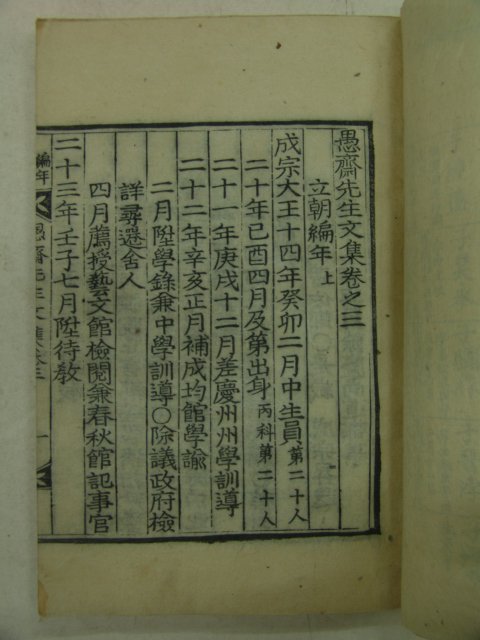 愚齋先生文集卷之三
立朝編年上
成宗大王十四年癸卯二月中生員第二十人
二十年己酉四月及第出身丙科第二十人
二十一年庚戌十二月差慶州州學訓導
二十二年辛亥正月補成均館學諭
二月陞學錄兼中學訓導○除議政府檢
詳尋遷舍人
四月薦授藝文館檢閱兼春秋館記事官
二十三年壬子七月陞待教
編年
愚齋先生文集卷三